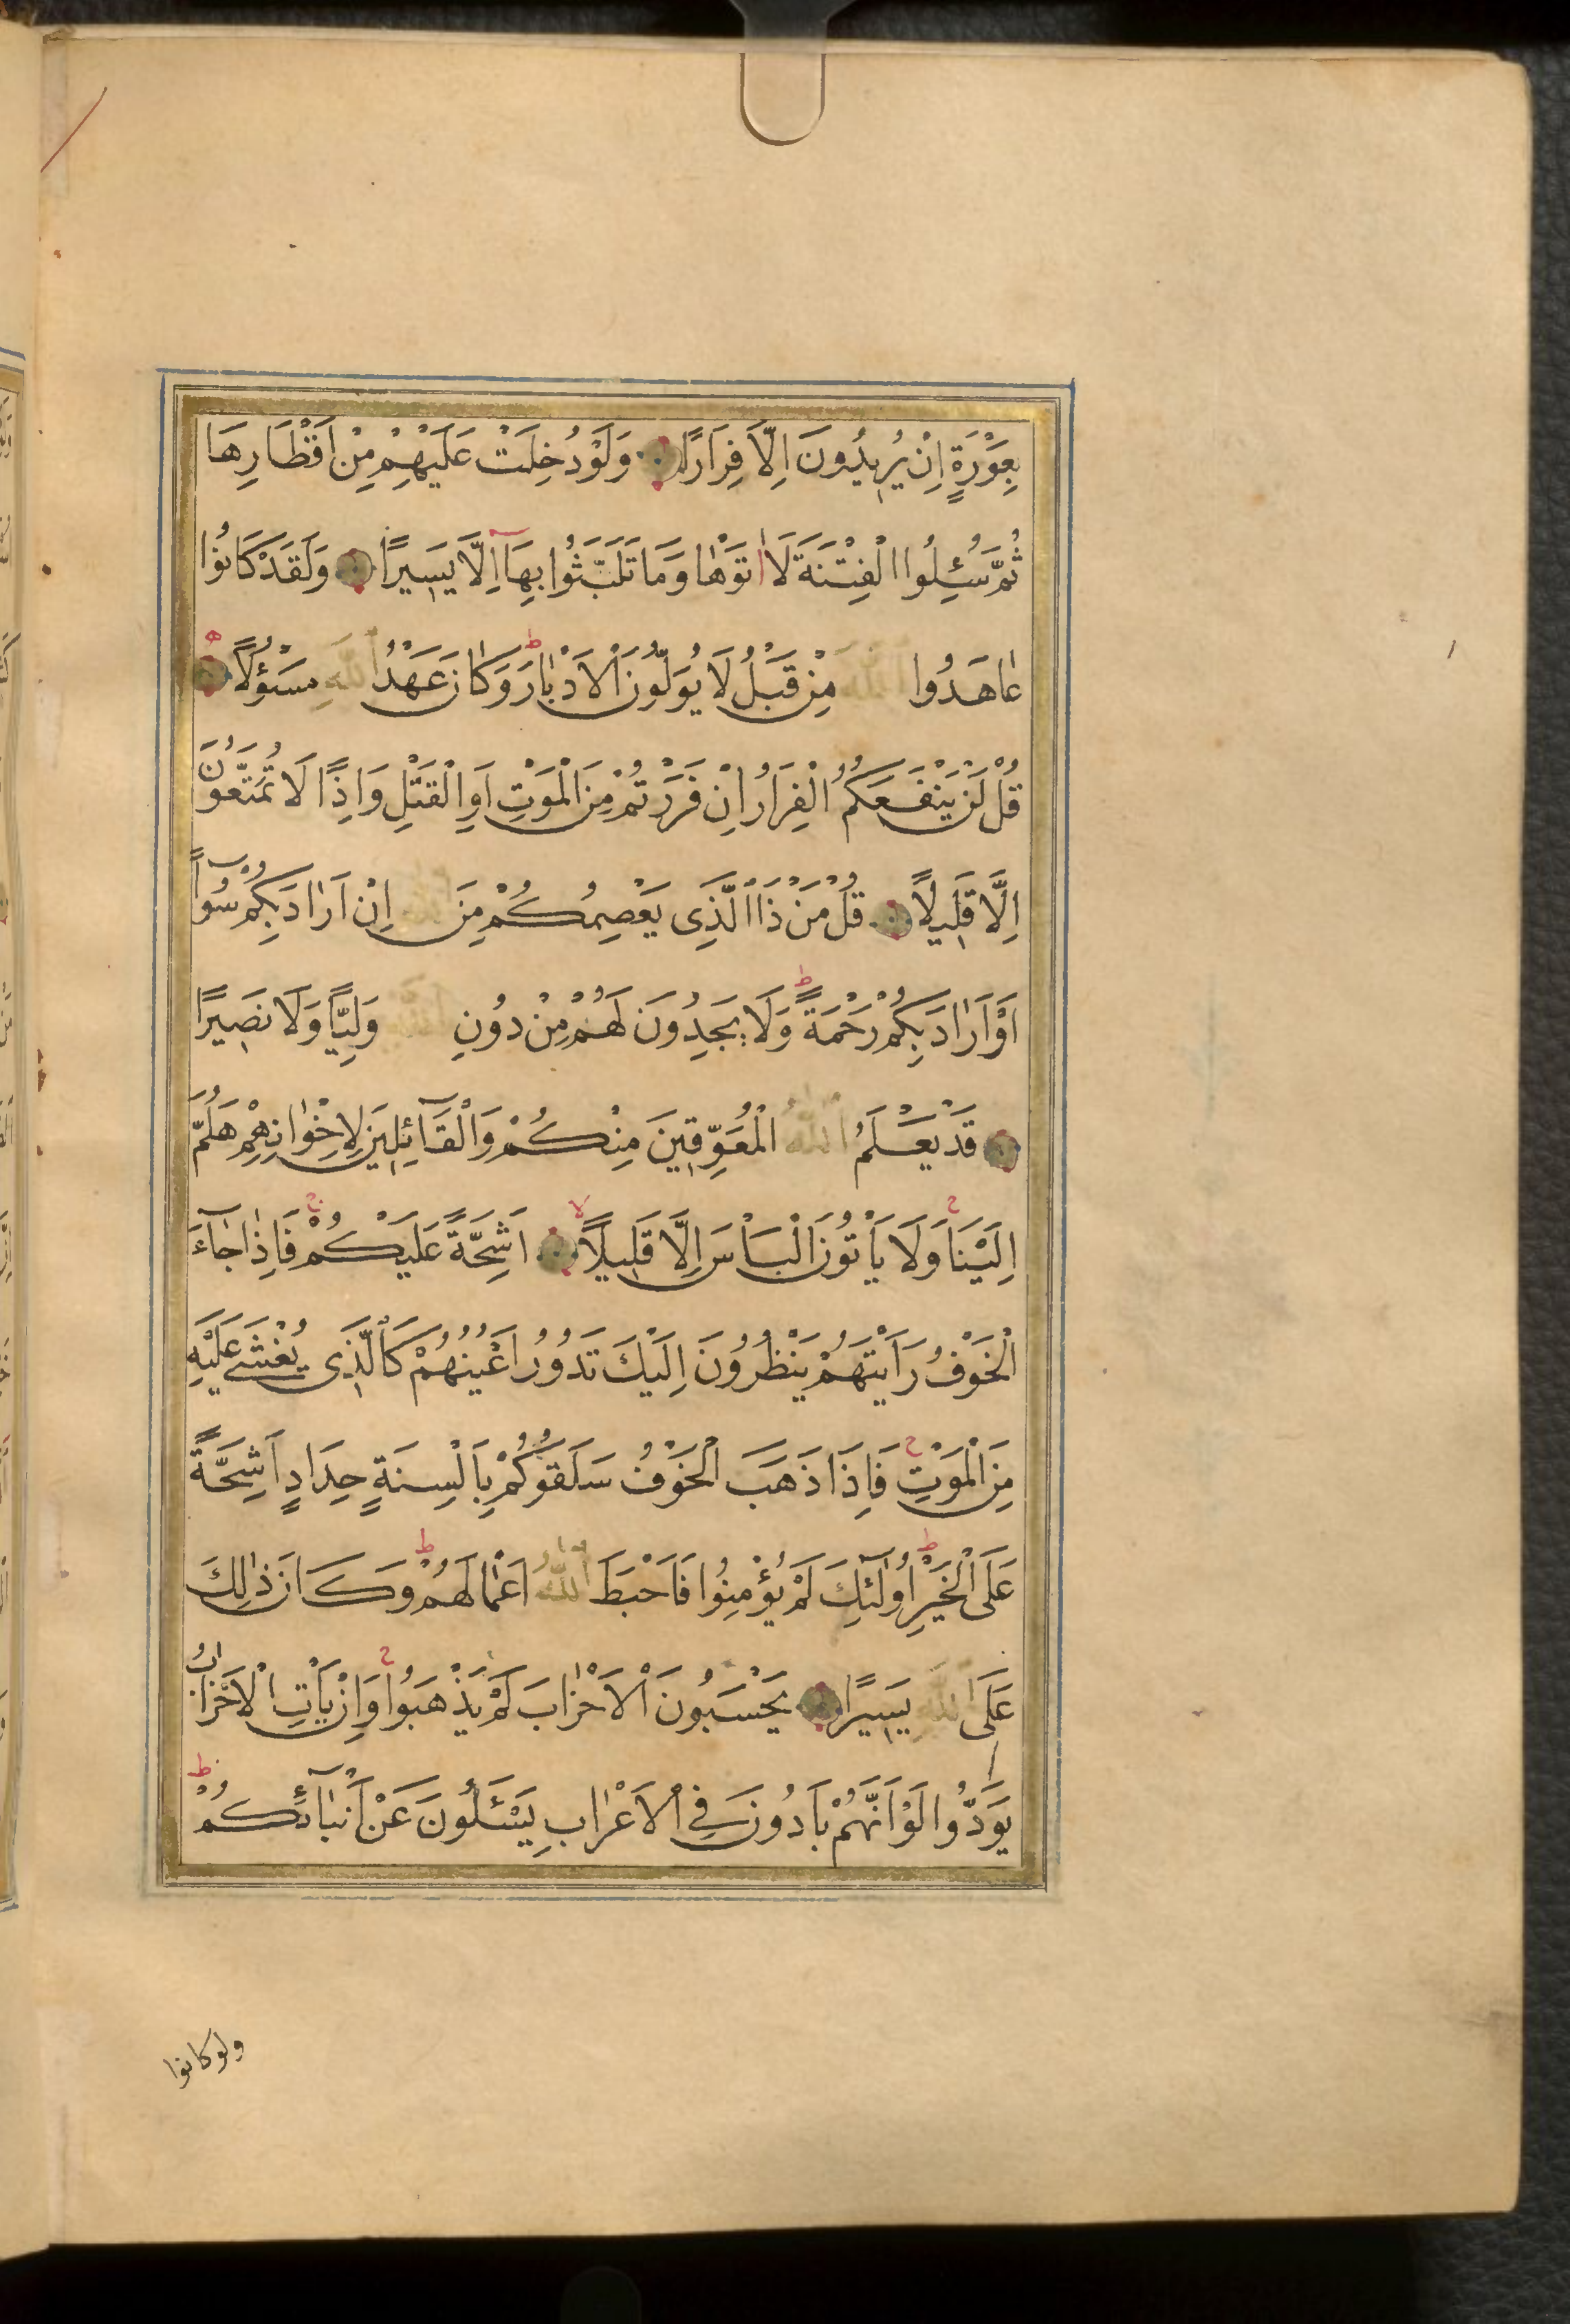 بِعَوْرَةٍ اِنْ يُرِيدُونَ اِلَّا فِرَارًا وَلَوْ دُخِلَتْ عَلَيْهِمْ مِنْ اَقْطَارِهَا
ثُمَّ سُئِلُوا الْفِتْنَةَ لَاٰتَوْهَا وَمَا تَلَبَّثُوا بِهَٓا اِلَّا يَسِيرًا وَلَقَدْ كَانُوا
عَاهَدُوا اللّٰهَ مِنْ قَبْلُ لَا يُوَلُّونَ الْاَدْبَارَ ط وَكَانَ عَهْدُ اللّٰهِ مَسْؤُلًا
قُلْ لَنْ يَنْفَعَكُمُ الْفِرَارُ اِنْ فَرَرْتُمْ مِنَ الْمَوْتِ اَوِ الْقَتْلِ وَاِذًا لَا تُمَتَّعُونَ
اِلَّا قَلِيلًا قُلْ مَنْ ذَا الَّذِى يَعْصِمُكُمْ مِنَ اللّٰهِ اِنْ اَرَادَ بِكُمْ سُٓوأً
اَوْ اَرَادَ بِكُمْ رَحْمَةً ط وَلَا يَجِدُونَ لَهُمْ مِنْ دُونِ اللّٰهِ وَلِيًّا وَلَا نَصِيرًا
قَدْ يَعْلَمُ اللّٰهُ الْمُعَوِّقِينَ مِنْكُمْ وَالْقَٓائِلِينَ لِاِخْوَانِهِمْ هَلُمَّ
اِلَيْنَا ج وَلَا يَأْتُونَ الْبَأْسَ اِلَّا قَلِيلًا لا اَشِحَّةً عَلَيْكُمْ ج فَاِذَا جَٓاءَ
الْخَوْفُ رَاَيْتَهُمْ يَنْظُرُونَ اِلَيْكَ تَدُورُ اَعْيُنُهُمْ كَالَّذِى يُغْشٰى عَلَيْهِ
مِنَ الْمَوْتِ ج فَاِذَا ذَهَبَ الْخَوْفُ سَلَقُوكُمْ بِاَلْسِنَةٍ حِدَادٍ اَشِحَّةً
عَلَى الْخَيْرِ ط اُولٰٓئِكَ لَمْ يُؤْمِنُوا فَاَحْبَطَ اللّٰهُ اَعْمَالَهُمْ ط وَكَانَ ذٰلِكَ
عَلَى اللّٰهِ يَسِيرًا يَحْسَبُونَ الْاَحْزَابَ لَمْ يَذْهَبُوا ج وَاِنْ يَأْتِ الْاَحْزَابُ
يَوَدُّوا لَوْ اَنَّهُمْ بَادُونَ فِى الْاَعْرَابِ يَسْئَلُونَ عَنْ اَنْبَٓائِكُمْ ط
ولو كانوا